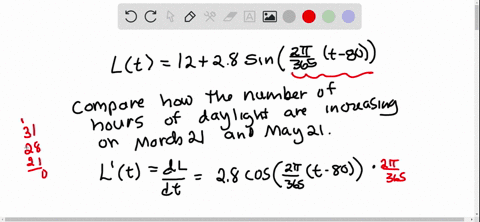 L(t) = 12 + 2.8 sin(2π/365 (t-80))
Compare how the number of
hours of daylight are increasing
on March 21 and May 21.
1
31
28
21
0
L'(t) = dL/dt = 2.8 cos(2π/365 (t-80)) · 2π/365